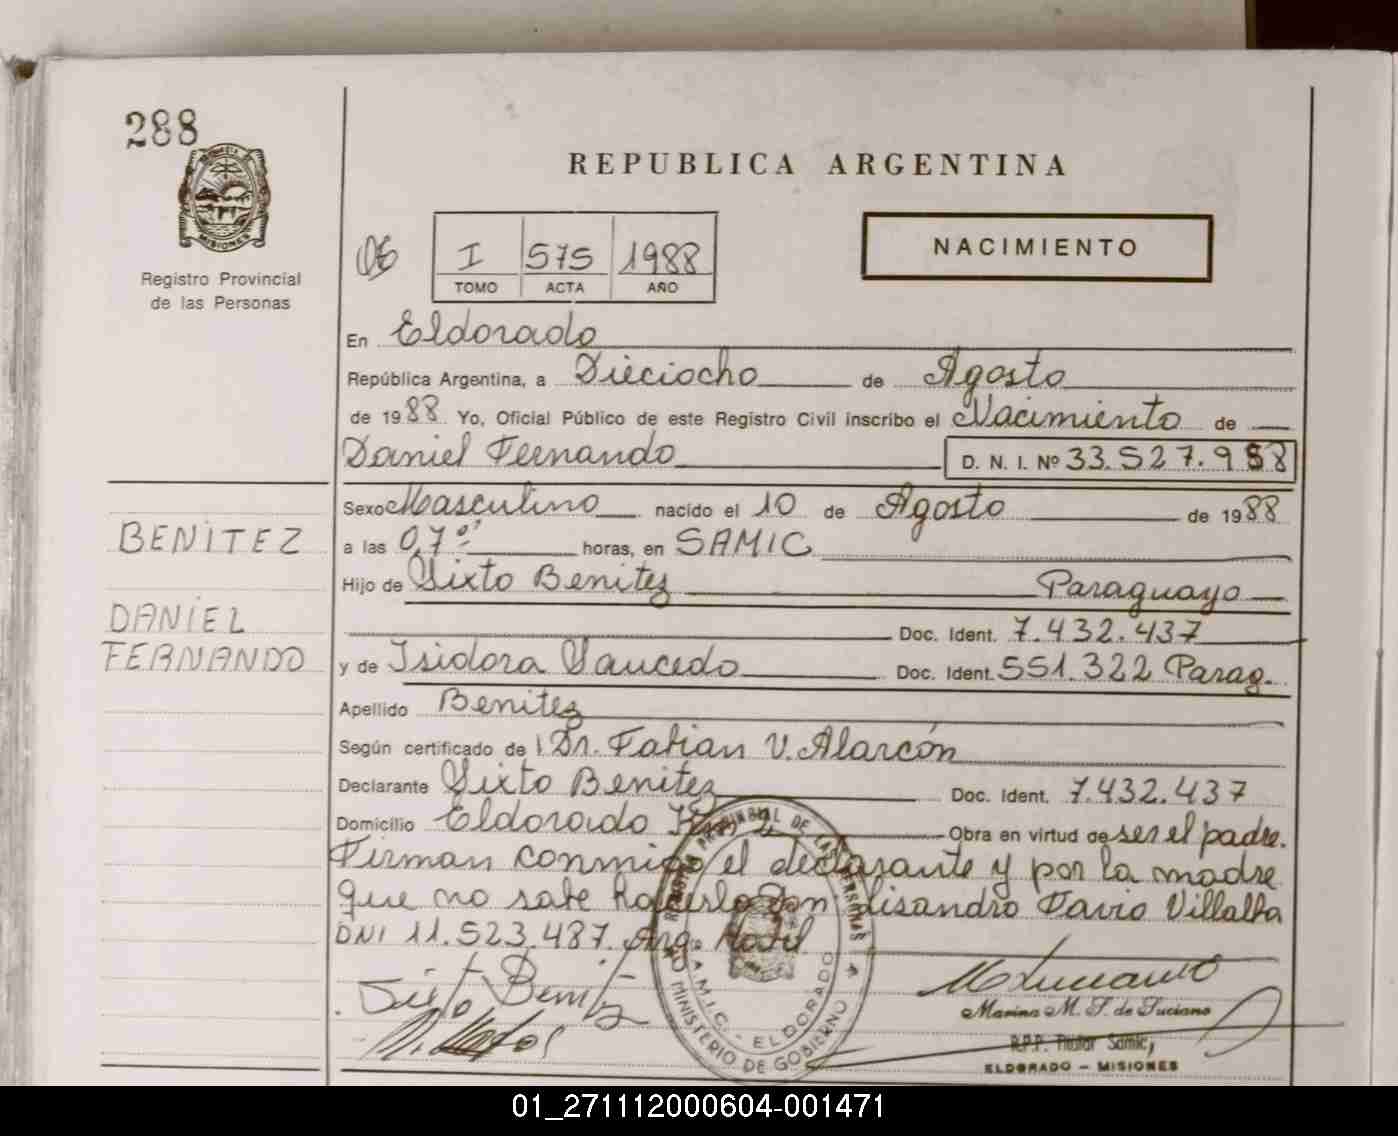 288
MISIONES
Registro Provincial
de las Personas
REPUBLICA ARGENTINA
06
I 575 1988
TOMO ACTA AÑO
NACIMIENTO
En Eldorado
República Argentina, a Dieciocho de Agosto
de 1988 Yo, Oficial Público de este Registro Civil inscribo el Nacimiento de
Daniel Fernando D. N. I. Nº 33.527.958
Sexo Masculino nacido el 10 de Agosto de 1988
BENITEZ
a las 0,7 horas, en SAMIC
Hijo de Sixto Benitez Paraguayo
DANIEL
Doc. Ident. 7.432.437
FERNANDO
y de Isidora Saucedo Doc. Ident. 551.322 Parag.
Apellido Benitez
Según certificado de Dr. Fabian V. Alarcón
Declarante Sixto Benitez Doc. Ident. 7.432.437
Domicilio Eldorado Obra en virtud de ser el padre.
Firman conmigo el declarante y por la madre
que no sabe hacerlo Don Lisandro Favio Villalba
DNI 11.523.487. Arg.
REGISTRO PROVINCIAL DE LAS PERSONAS
S.A.M.I.C. - ELDORADO
MINISTERIO DE GOBIERNO
Sixto Benitez
Marina M. F. de Luciano
R.P.P. Titular Samic,
ELDORADO – MISIONES
01_271112000604-001471